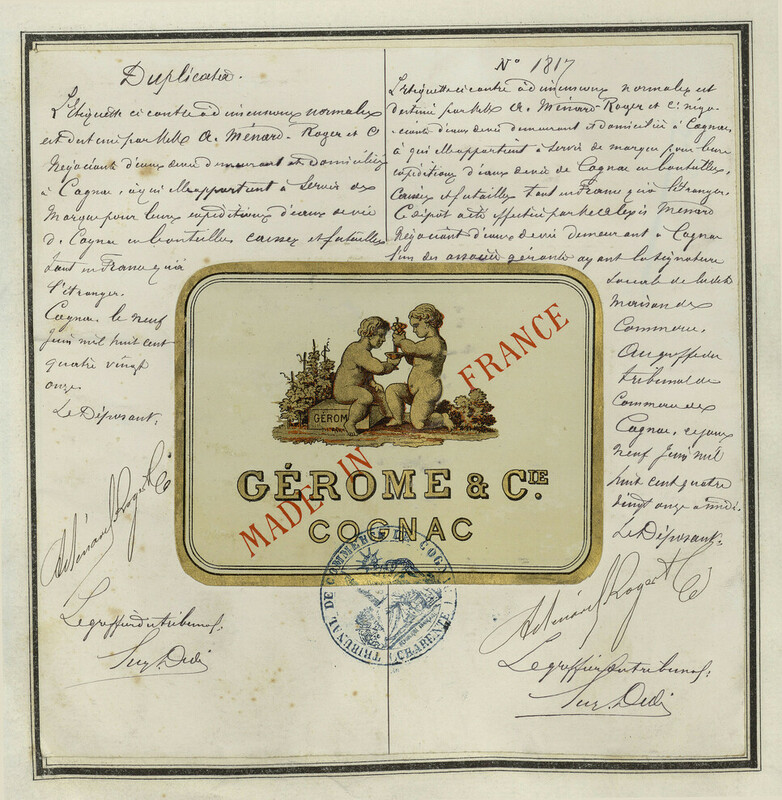 Duplicata.
L'Etiquette ci contre ad imensions normales
est destinée par MM. A. Ménard-Royer et Cie
Négociants d'eaux devie demeurant et domiciliés
à Cognac, à qui elle appartient à Servir de
Marque pour leurs expéditions d'eaux de vie
de Cognac en bouteilles caisses et futailles
tant en France qu'à
l'étranger.
Cognac le neuf
Juin mil huit cent
quatre vingt
onze.
Le Déposant,
A. Ménard Royer & Cie
Le greffier du tribunal
N° 1817
L'étiquette ci contre ad imensions normales est
destinée par MM. A. Ménard-Royer et Cie négo-
-ciants d'eaux devie demeurant et domiciliés à Cognac
à qui elle appartient à servir de marque pour leurs
expéditions d'eaux devie de Cognac en bouteilles,
Caisses et futailles tant en France qu'à l'étranger.
Ce dépôt a été effectué par Mr Alexis Ménard
Négociant d'eaux devie demeurant à Cognac
l'un des associés gérants ayant la signature
sociale de ladite
maison de
Commerce,
Au greffe du
tribunal de
Commerce de
Cognac, ce jour
neuf Juin mil
huit cent quatre
vingt onze à midi.
Le Déposant,
A. Ménard Royer & Cie
Le greffier du tribunal
GÉROM
MADE IN FRANCE
GÉROME & CIE.
COGNAC
TRIBUNAL DE COMMERCE DE COGNAC (CHARENTE)